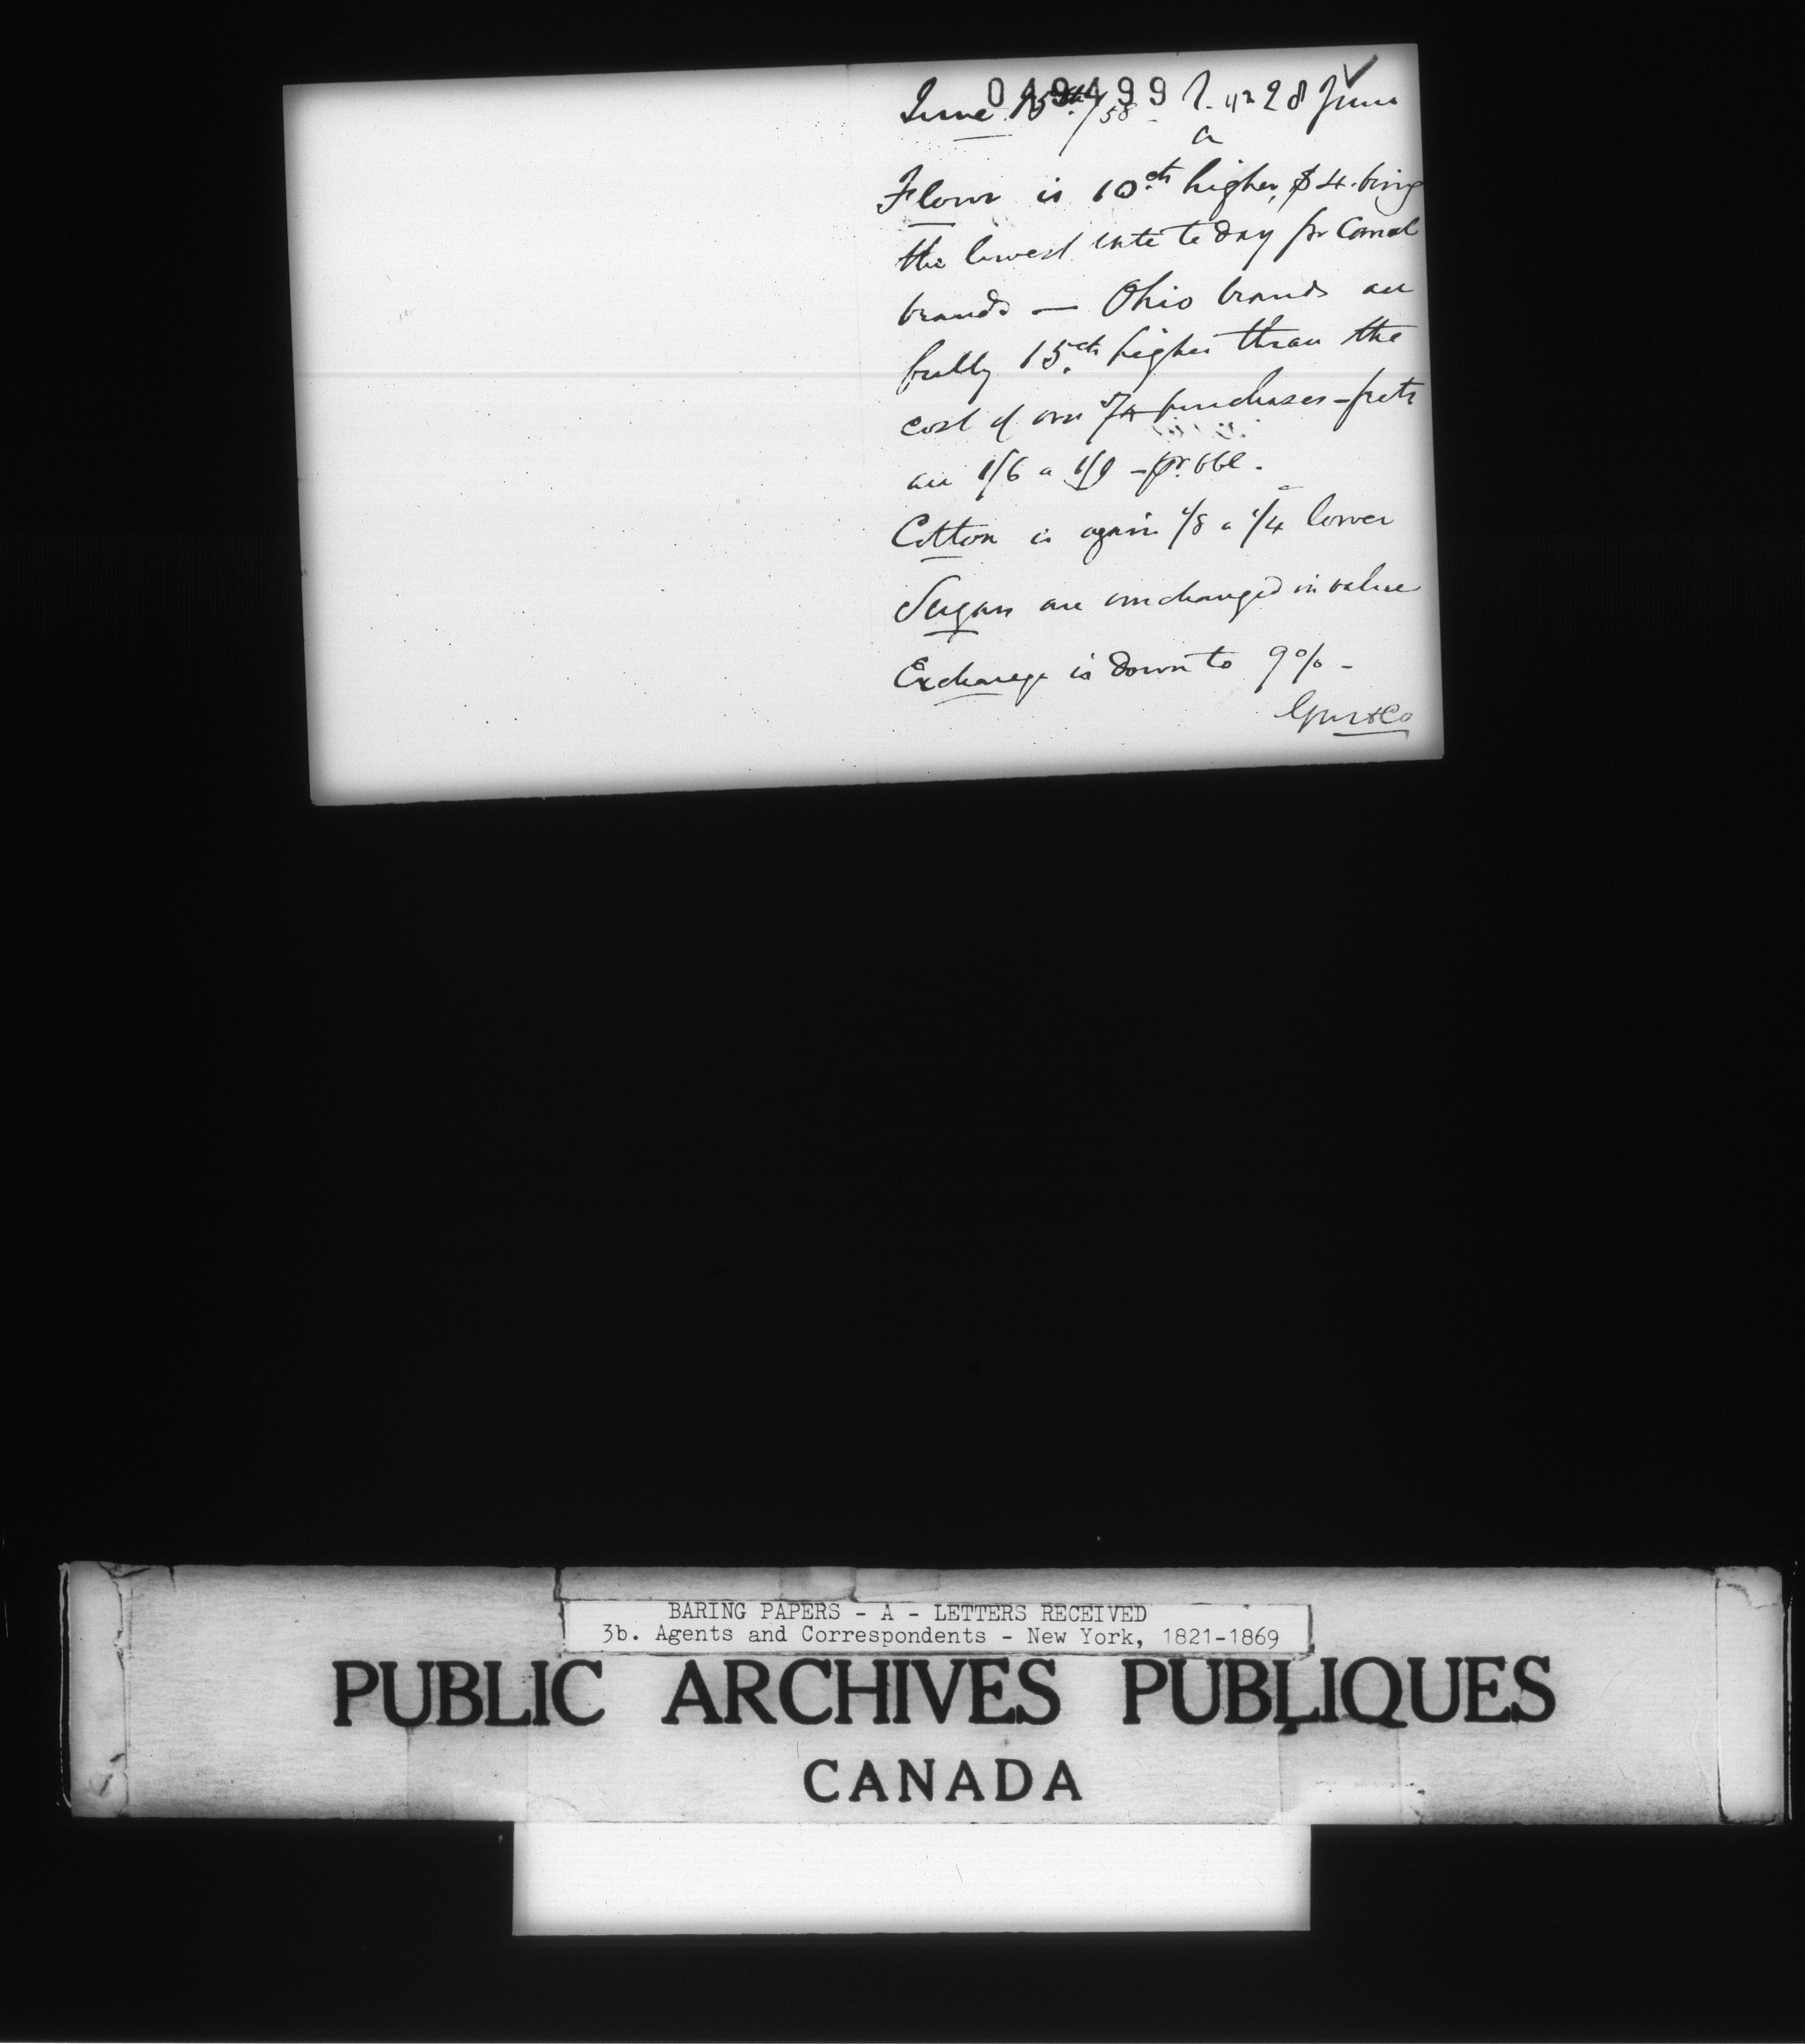 049499
June 15th/58 28 June
a
Flour is 10cts higher, $4. being
the lowest rate to day for Canal
brands — Ohio brands are
fully 15cts higher than the
cost of our purchases - frts
are 1/6 a 1/9 - pr. bbl.
Cotton is again 1/8 a 1/4 lower
Sugars are unchanged in value
Exchange is down to 9% -
&Co
BARING PAPERS - A - LETTERS RECEIVED
3b. Agents and Correspondents - New York, 1821-1869
PUBLIC ARCHIVES PUBLIQUES
CANADA